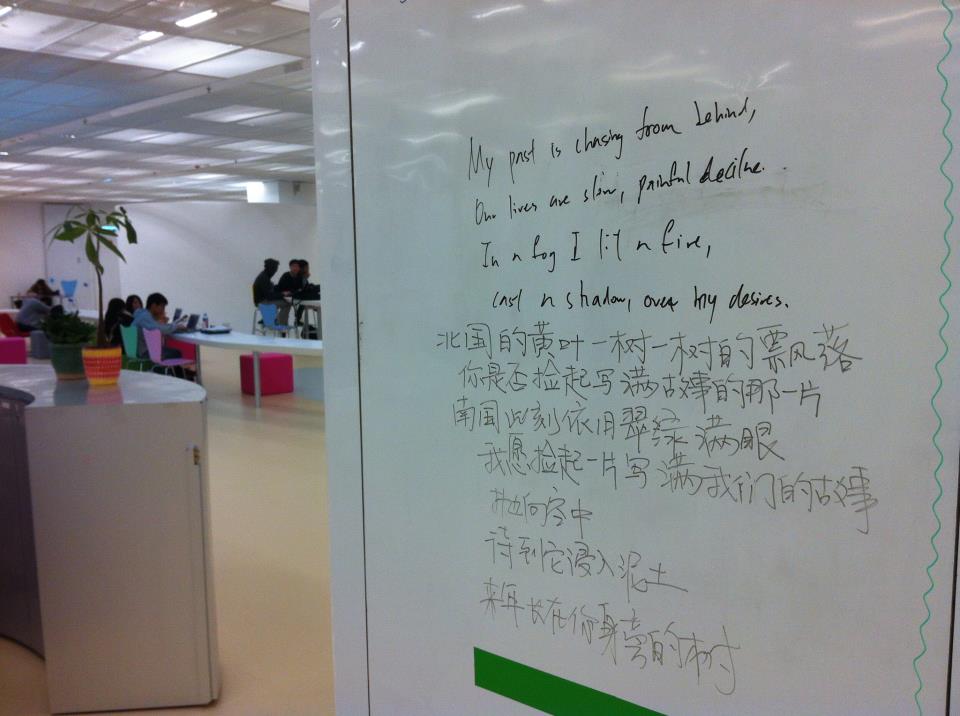 My past is chasing from behind,
Our lives are slow, painful decline.
In a fog I lit a fire,
cast a shadow, over my desires.
北国的黄叶一树一树的飘风落
你是否捡起写满古事的那一片
南国此刻依旧翠绿满眼
我愿捡起一片写满我们的古事
抛向空中
待到它浸入泥土
来年长在你身旁的树